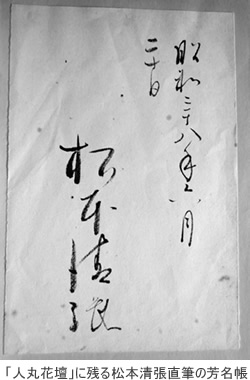 昭和三十八年六月
二十日
松本清張
「人丸花壇」に残る松本清張直筆の芳名帳